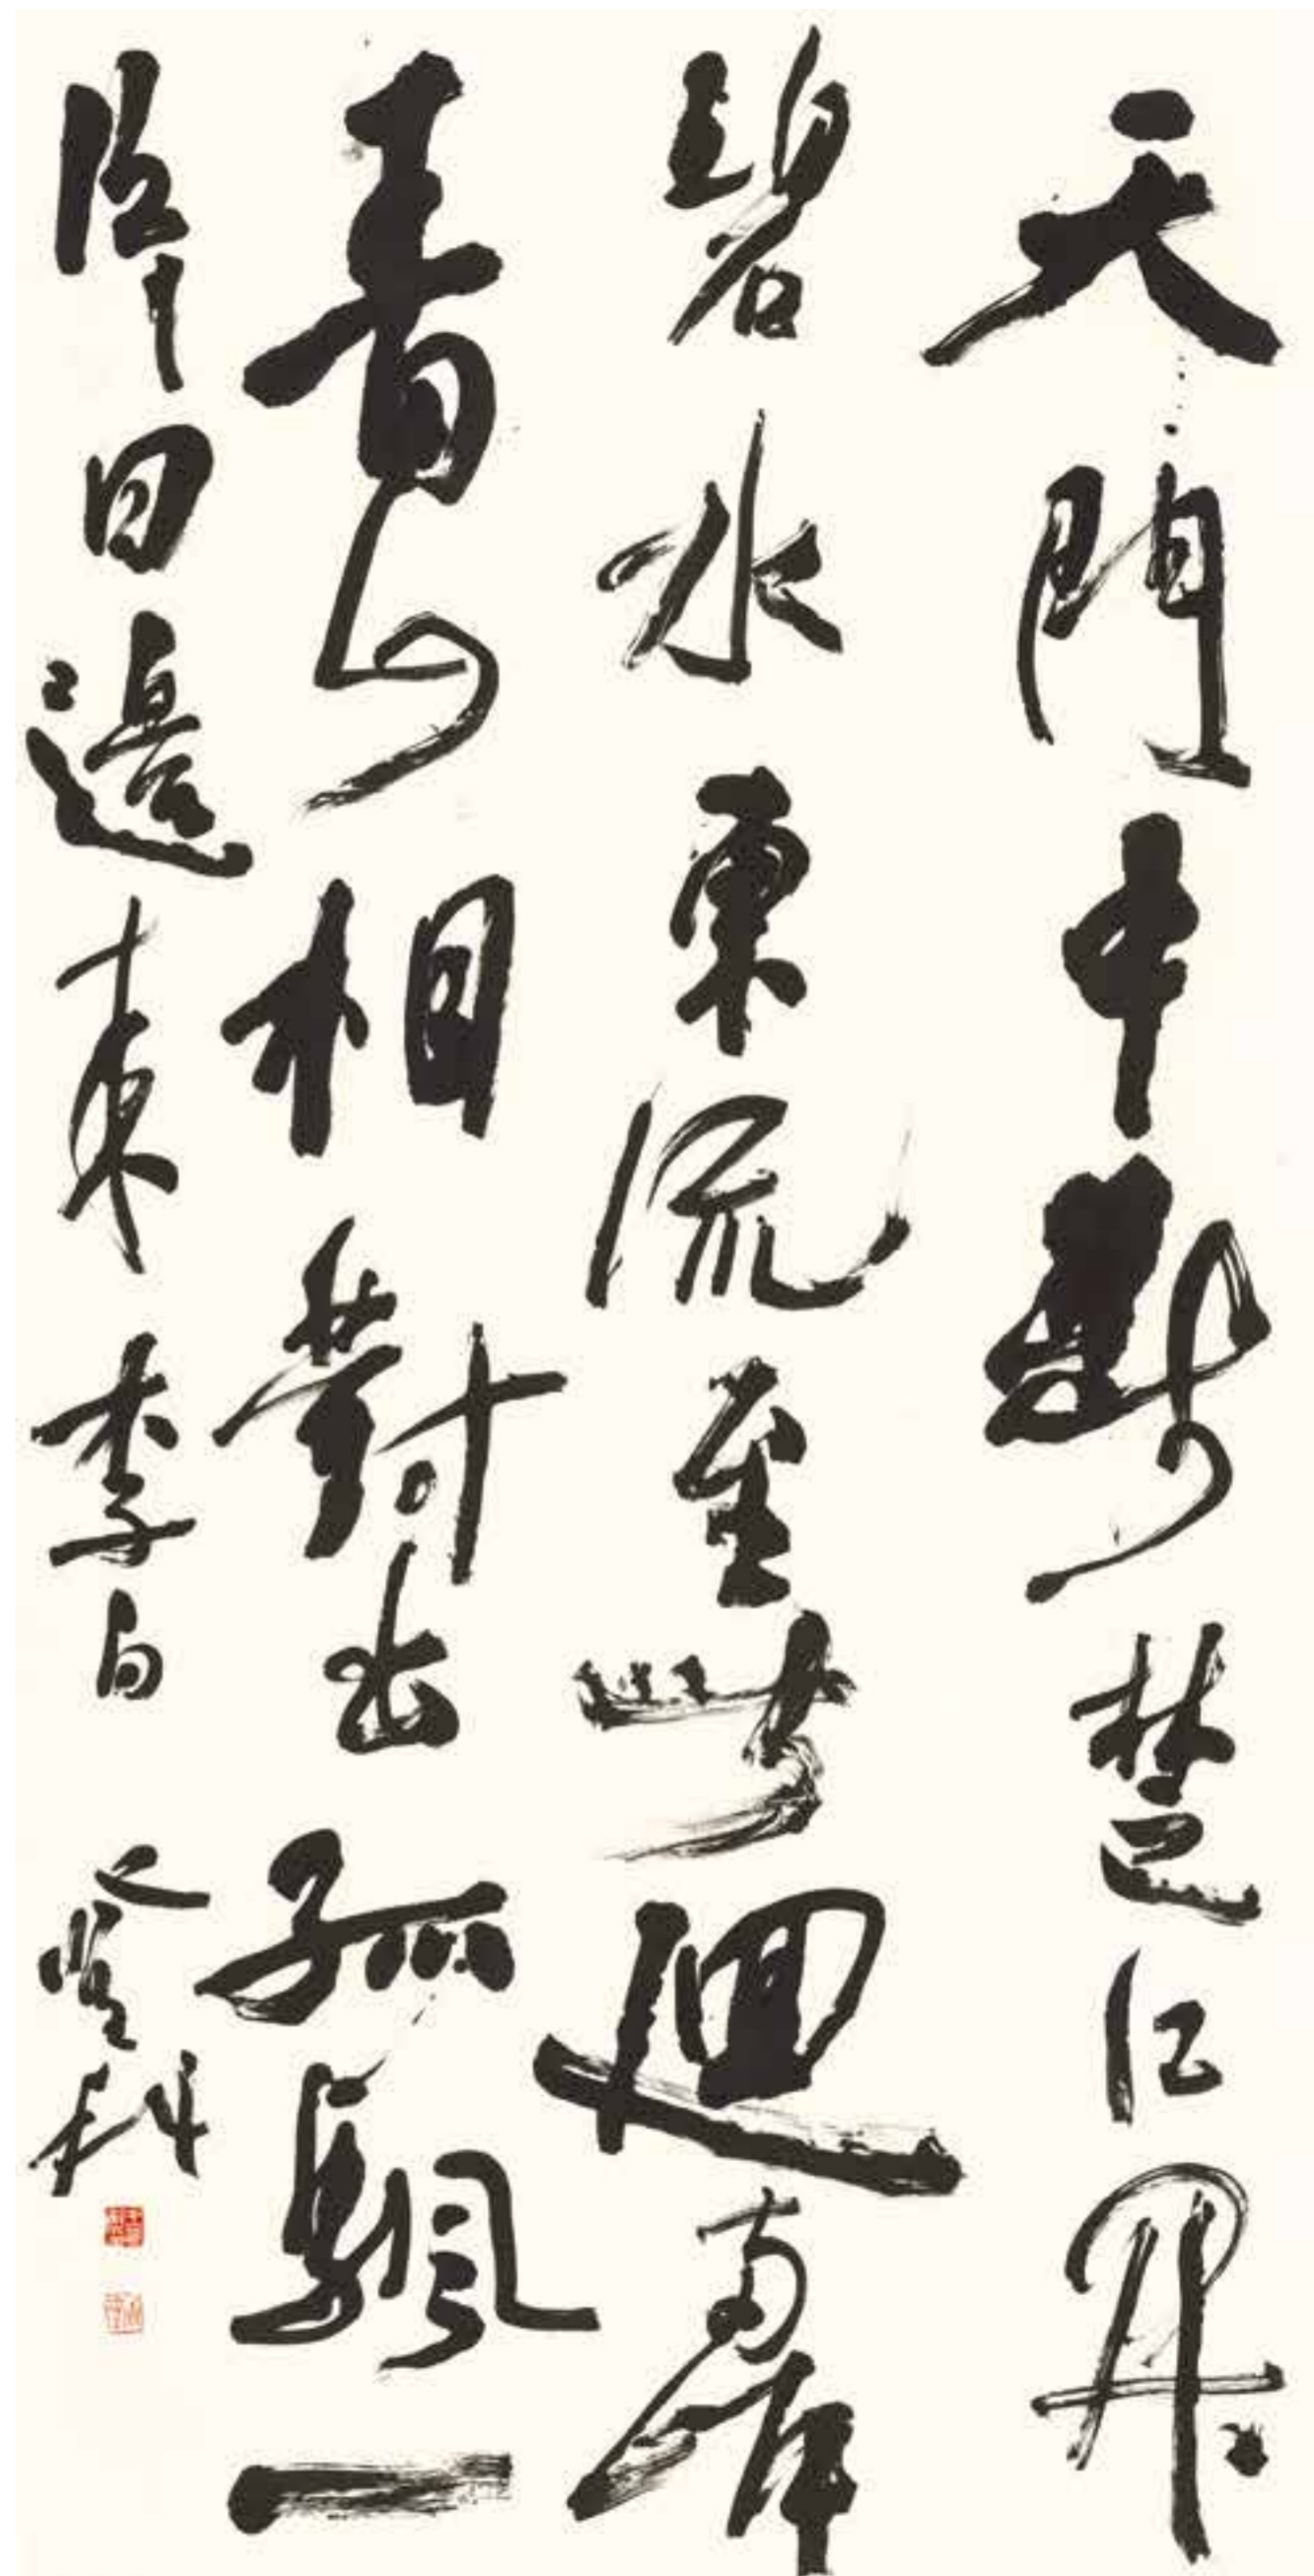 天門中斷楚江開
碧水東流至此迴兩岸
青山相對出孤颿一
片日邊來李白